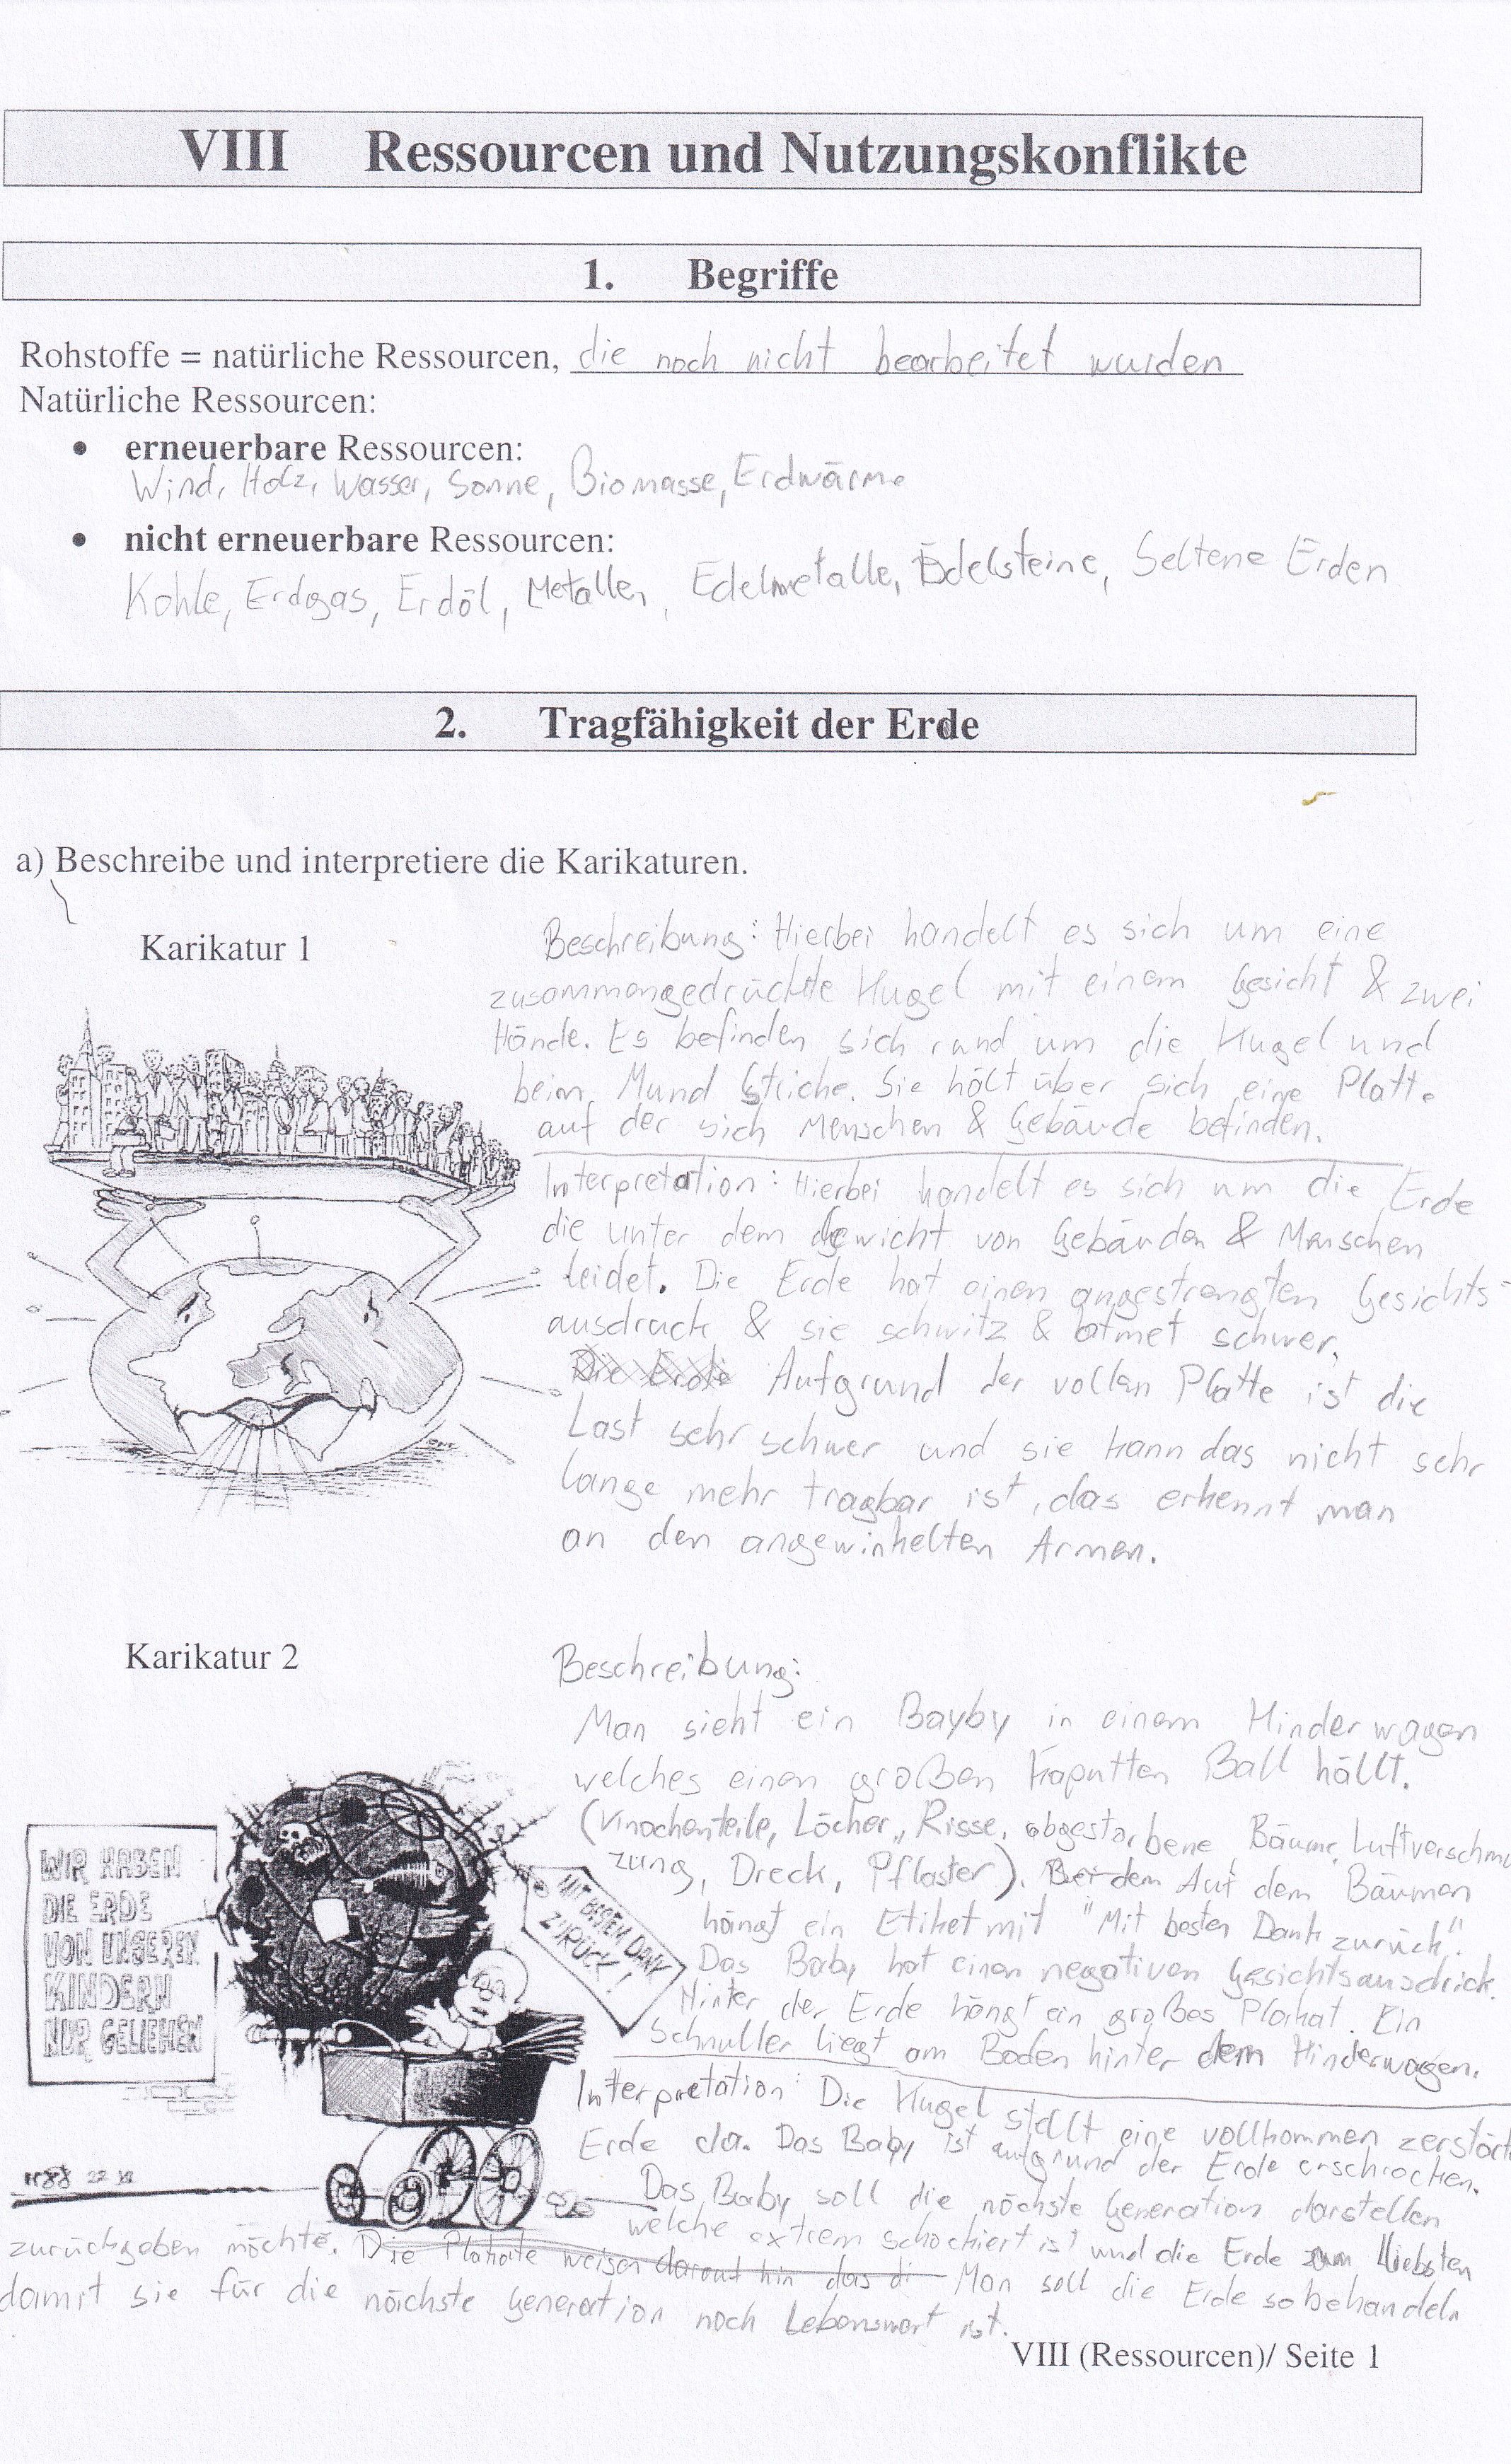 VIII Ressourcen und Nutzungskonflikte
1. Begriffe
Rohstoffe = natürliche Ressourcen, die noch nicht bearbeitet wurden
Natürliche Ressourcen:
• erneuerbare Ressourcen:
Wind, Holz, Wasser, Sonne, Biomasse, Erdwärme
• nicht erneuerbare Ressourcen:
Kohle, Erdgas, Erdöl, Metalle, Edelmetalle, Edelsteine, Seltene Erden
2. Tragfähigkeit der Erde
a) Beschreibe und interpretiere die Karikaturen.
Karikatur 1
Beschreibung: Hierbei handelt es sich um eine
zusammengedrückte Kugel mit einem Gesicht & zwei
Hände. Es befinden sich rund um die Kugel und
beim Mund Striche. Sie hält über sich eine Platte
auf der sich Menschen & Gebäude befinden.
Interpretation: Hierbei handelt es sich um die Erde
die unter dem Gewicht von Gebäuden & Menschen
leidet. Die Erde hat einen angestrengten Gesichts-
ausdruck & sie schwitz & atmet schwer.
Die Erde Aufgrund der vollen Platte ist die
Last sehr schwer und sie kann das nicht sehr
lange mehr tragbar ist, das erkennt man
an den angewinkelten Armen.
Karikatur 2
Beschreibung:
Man sieht ein Bayby in einem Kinderwagen
welches einen großen kaputten Ball hällt.
(Knochenteile, Löcher, Risse, abgestorbene Bäume, Luftverschmu
zung, Dreck, Pflaster). Bei dem Auf dem Bäumen
hängt ein Etiket mit "Mit besten Dank zurück".
Das Baby hat einen negativen Gesichtsausdrick.
Hinter der Erde hängt ein großes Plakat. Ein
Schnuller liegt am Boden hinter dem Kinderwagen.
WIR HABEN
DIE ERDE
VON UNSEREN
KINDERN
NUR GELIEHEN
MIT BESTEM DANK
ZURÜCK!
Interpretation: Die Kugel stellt eine vollkommen zerstört
Erde da. Das Baby ist aufgrund der Erde erschrocken.
Das Baby soll die nächste Generation darstellen
welche extrem schockiert ist und die Erde am liebsten
zurückgeben möchte. Die Plakate weisen darauf hin das di Man soll die Erde so behandeln
damit sie für die nächste Generation noch Lebenswert ist.
VIII (Ressourcen)/ Seite 1